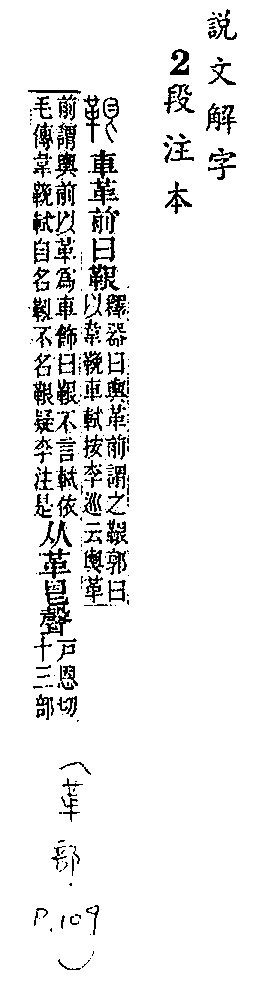 說文解字
2段注本
車革前曰鞎
釋器曰輿革前謂之鞎郭曰
以韋鞔車軾按李巡云輿革
前謂輿前以革爲車飾曰鞎不言軾依
毛傳韋鞔軾自名鞃不名鞎疑李注是
从革艮聲
戶恩切
十三部
(革部.
P.109)